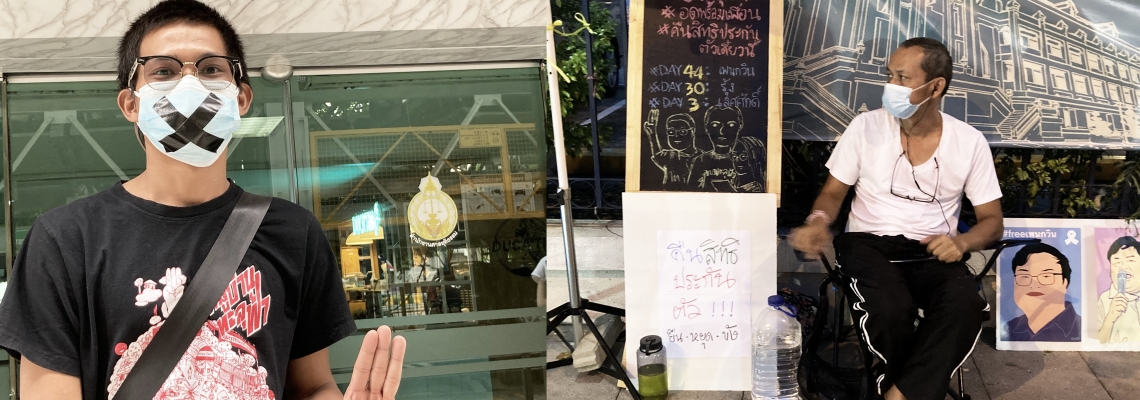 # อดพร้อมเพื่อน
# คืนสิทธิประกัน
ตัวเดี๋ยวนี้
#DAY 44: เพนกวิน
#DAY 30: รุ้ง
#DAY 3:
คืนสิทธิ
ประกัน
ตัว !!!
ยืน·หยุด·ขัง
#freeเพนกวิน
สำนักงานศาลยุติธรรม